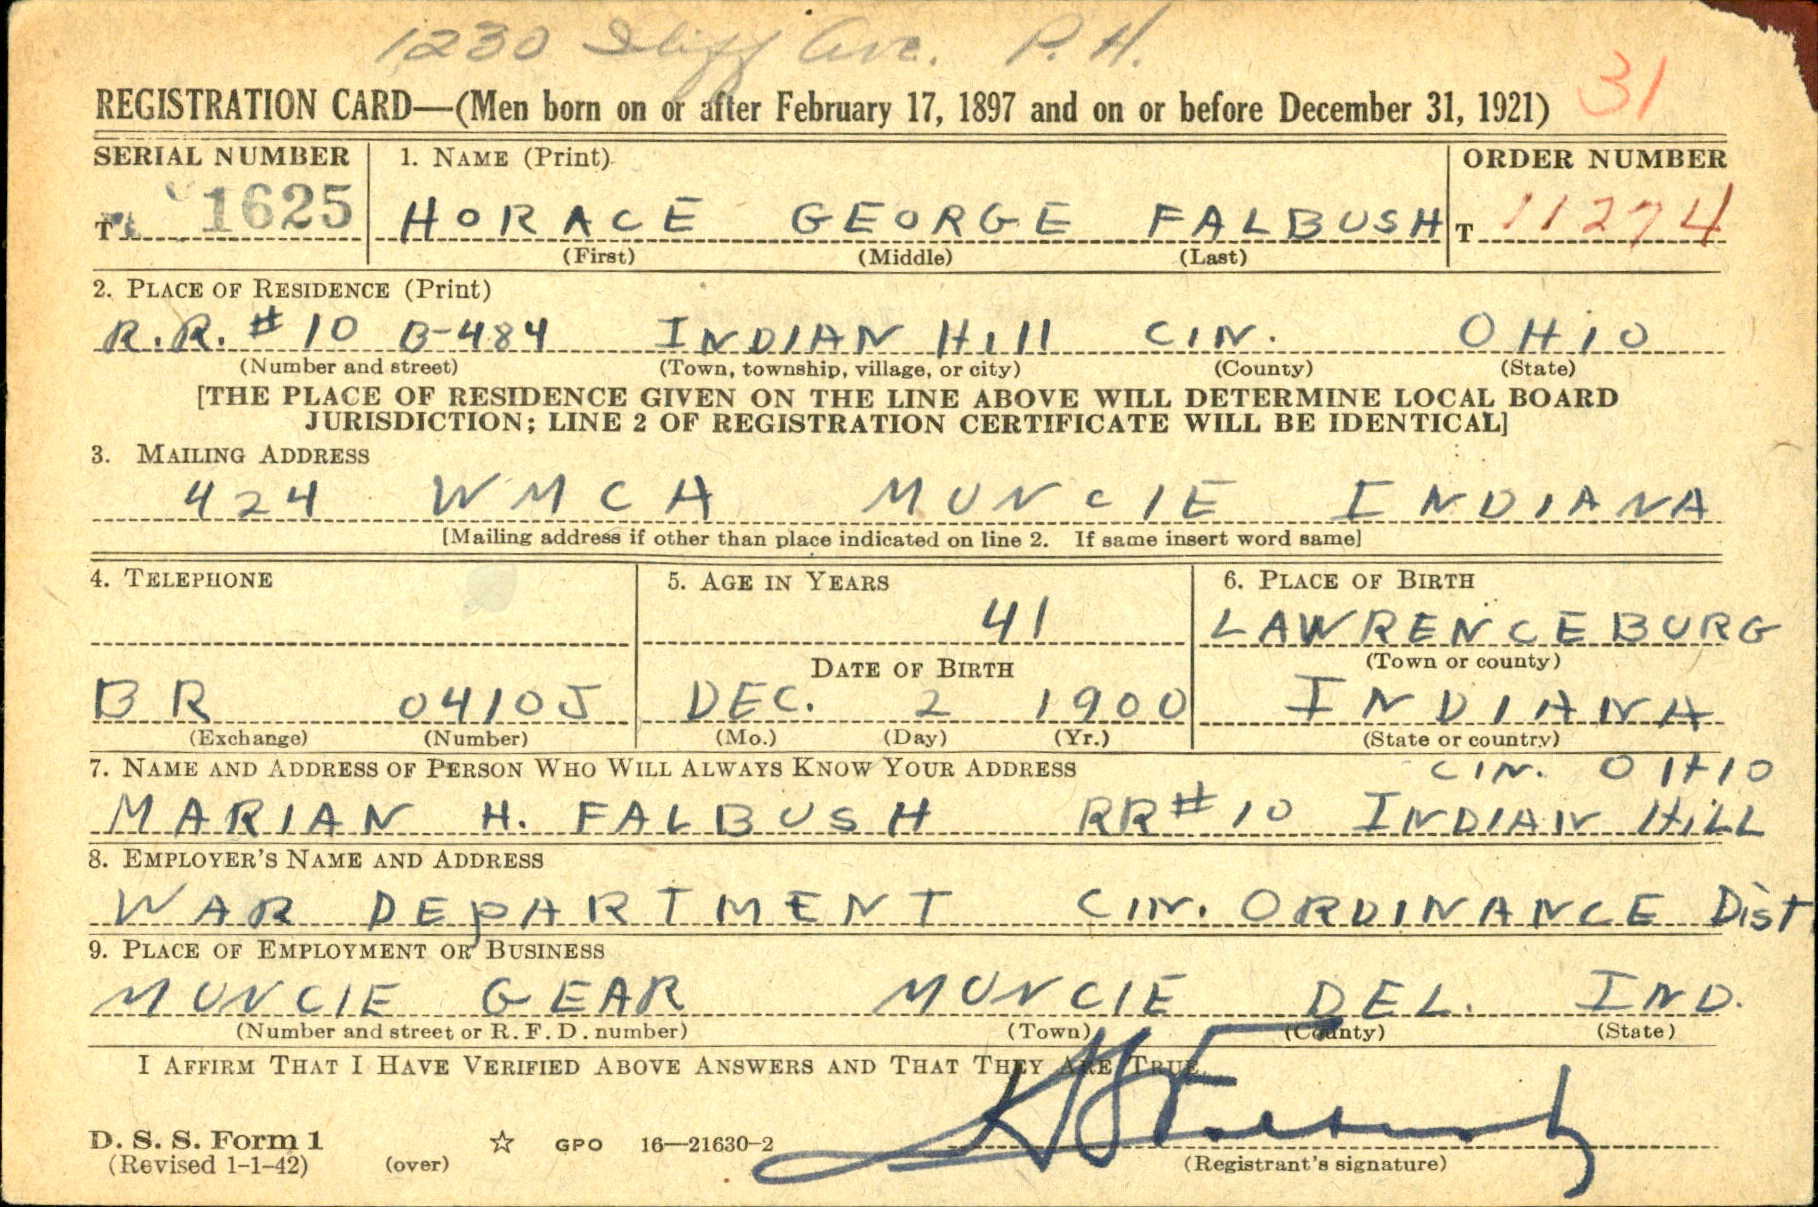 1230 Iliff Ave. P. H.
31
REGISTRATION CARD—(Men born on or after February 17, 1897 and on or before December 31, 1921)
SERIAL NUMBER 1. NAME (Print) ORDER NUMBER
T 1625 HORACE GEORGE FALBUSH T 11274
(First) (Middle) (Last)
2. PLACE OF RESIDENCE (Print)
R.R. # 10 B-484 INDIAN Hill CIN. OHiO
(Number and street) (Town, township, village, or city) (County) (State)
[THE PLACE OF RESIDENCE GIVEN ON THE LINE ABOVE WILL DETERMINE LOCAL BOARD
JURISDICTION; LINE 2 OF REGISTRATION CERTIFICATE WILL BE IDENTICAL]
3. MAILING ADDRESS
424 WMCA MUNCIE INDIANA
[Mailing address if other than place indicated on line 2. If same insert word same]
4. TELEPHONE 5. AGE IN YEARS 6. PLACE OF BIRTH
41 LAWRENCEBURG
DATE OF BIRTH (Town or county)
BR 0410J DEC. 2 1900 INDIANA
(Exchange) (Number) (Mo.) (Day) (Yr.) (State or country)
7. NAME AND ADDRESS OF PERSON WHO WILL ALWAYS KNOW YOUR ADDRESS CIN. OHIO
MARIAN H. FALBUSH RR# 10 INDIAN HiLL
8. EMPLOYER'S NAME AND ADDRESS
WAR DEpARTMENT CIN. ORDINANCE Dist
9. PLACE OF EMPLOYMENT OR BUSINESS
MUNCIE GEAR MUNCIE DEL. IND.
(Number and street or R. F. D. number) (Town) (County) (State)
I AFFIRM THAT I HAVE VERIFIED ABOVE ANSWERS AND THAT THEY ARE TRUE.
H G Falbush
D. S. S. Form 1 ☆ GPO 16—21630-2
(Revised 1-1-42) (over) (Registrant's signature)